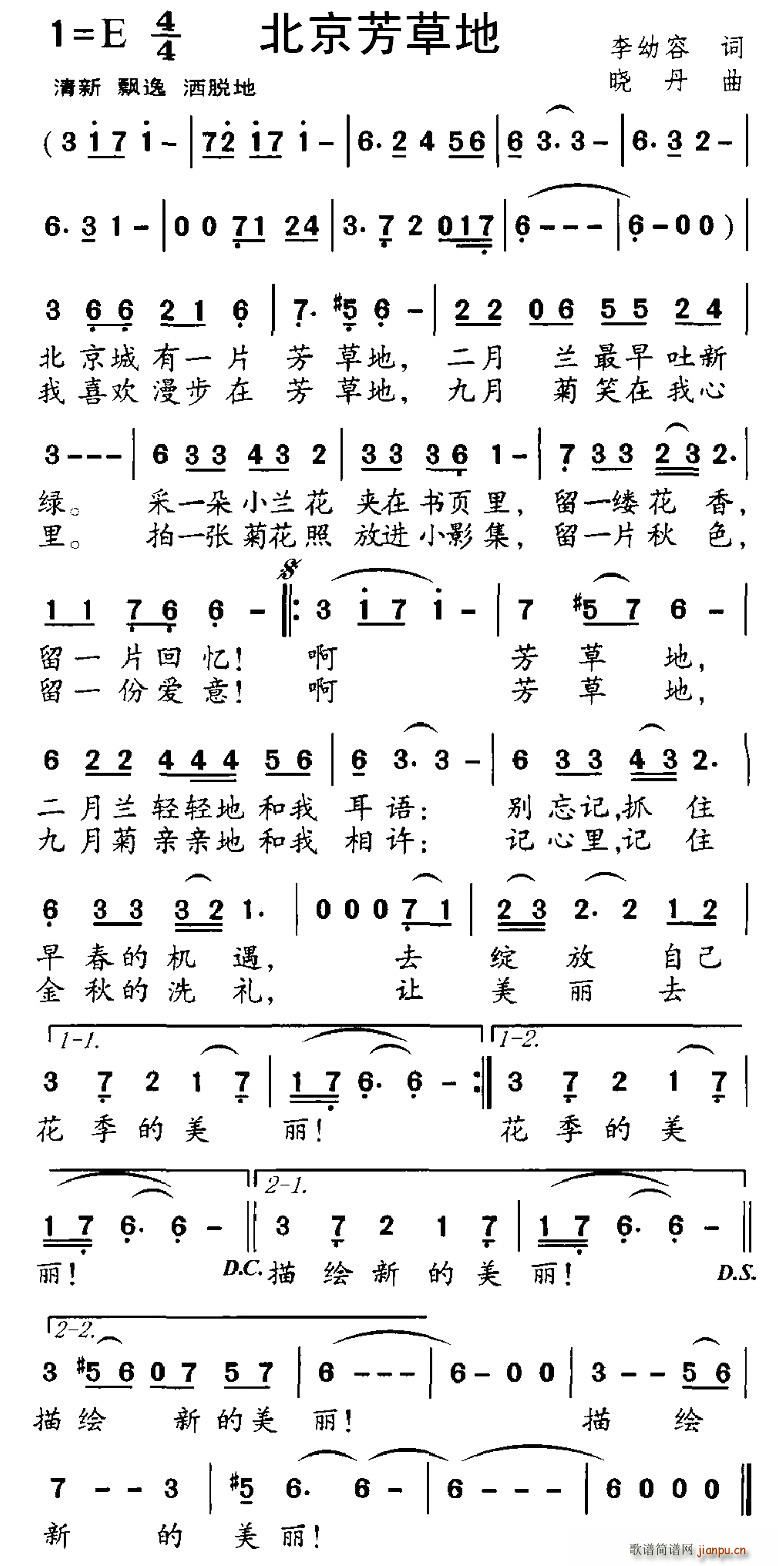 1=E 4/4 北京芳草地 李幼容 词
清新 飘逸 洒脱地 晓丹 曲
( 3 1 7 1 - | 7 2 1 7 1 - | 6· 2 4 5 6 | 6 3· 3 - | 6· 3 2 - |
6· 3 1 - | 0 0 7 1 2 4 | 3· 7 2 0 1 7 | 6 - - - | 6 - 0 0 )
3 6 6 2 1 6 | 7· #5 6 - | 2 2 0 6 5 5 2 4 |
北京城有一片 芳草地, 二月 兰最早吐新
我喜欢漫步在 芳草地, 九月 菊笑在我心
3 - - - | 6 3 3 4 3 2 | 3 3 3 6 1 - | 7 3 3 2 3 2· |
绿。 采一朵小兰花 夹在书页里, 留一缕花香,
里。 拍一张菊花照 放进小影集, 留一片秋色,
1 1 7 6 6 - ‖: 3 1 7 1 - | 7 #5 7 6 - |
留一片回忆! 啊 芳草地,
留一份爱意! 啊 芳草地,
6 2 2 4 4 4 5 6 | 6 3· 3 - | 6 3 3 4 3 2· |
二月兰轻轻地和我 耳语: 别忘记,抓住
九月菊亲亲地和我 相许: 记心里,记住
6 3 3 3 2 1· | 0 0 0 7 1 | 2 3 2· 2 1 2 |
早春的机遇, 去 绽放自己
金秋的洗礼, 让 美丽去
1-1. 1-2.
3 7 2 1 7 | 1 7 6· 6 - :‖ 3 7 2 1 7 |
花季的美 丽! 花季的美
2-1.
1 7 6· 6 - ‖ 3 7 2 1 7 | 1 7 6· 6 - ‖
丽! D.C. 描绘新的美 丽! D.S.
2-2.
3 #5 6 0 7 5 7 | 6 - - - | 6 - 0 0 | 3 - - 5 6 |
描绘 新的美 丽! 描绘
7 - - 3 | #5 6· 6 - | 6 - - - | 6 0 0 0 ‖
新 的 美丽!
歌谱简谱网
jianpu.cn